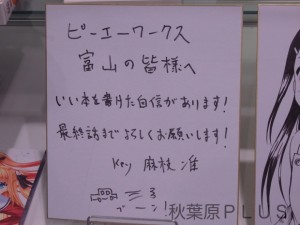 ピーエーワークス
富山の皆様へ
いい本を書けた自信があります!
最終話までよろしくお願いします!
Key 麻枝准
ブーン!
秋葉原PLUS